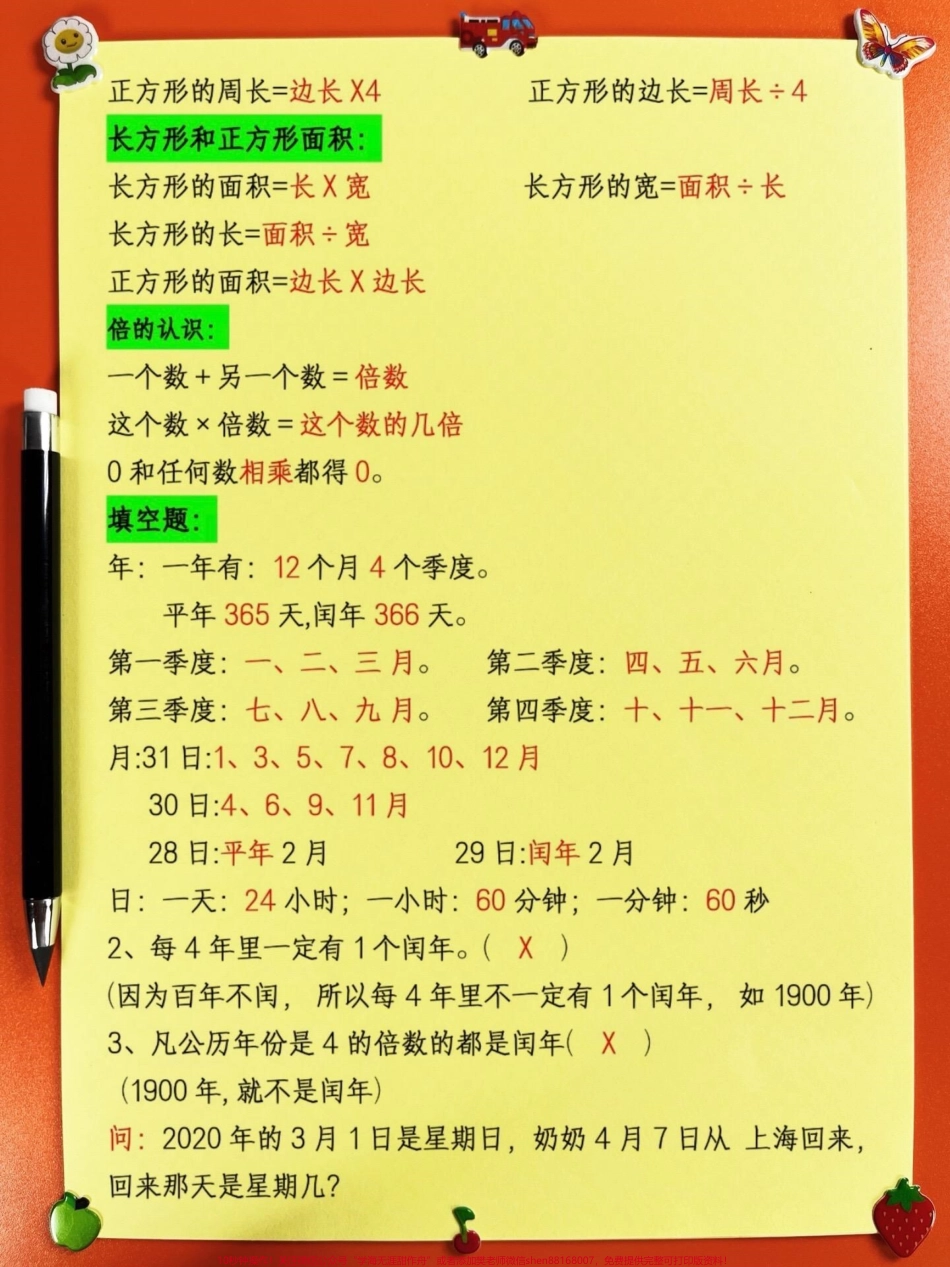 正方形的周长=边长X4 正方形的边长=周长÷4
长方形和正方形面积：
长方形的面积=长X宽 长方形的宽=面积÷长
长方形的长=面积÷宽
正方形的面积=边长X边长
倍的认识：
一个数+另一个数=倍数
这个数×倍数=这个数的几倍
0和任何数相乘都得0。
填空题：
年：一年有：12个月4个季度。
平年365天,闰年366天。
第一季度：一、二、三月。 第二季度：四、五、六月。
第三季度：七、八、九月。 第四季度：十、十一、十二月。
月:31日:1、3、5、7、8、10、12月
30日:4、6、9、11月
28日:平年2月 29日:闰年2月
日：一天：24小时；一小时：60分钟；一分钟：60秒
2、每4年里一定有1个闰年。( X )
(因为百年不闰， 所以每4年里不一定有1个闰年， 如1900年)
3、凡公历年份是4的倍数的都是闰年( X )
(1900年,就不是闰年)
问：2020年的3月1日是星期日，奶奶4月7日从 上海回来，
回来那天是星期几?
shen88168007，免费提供完整可打印版资料!